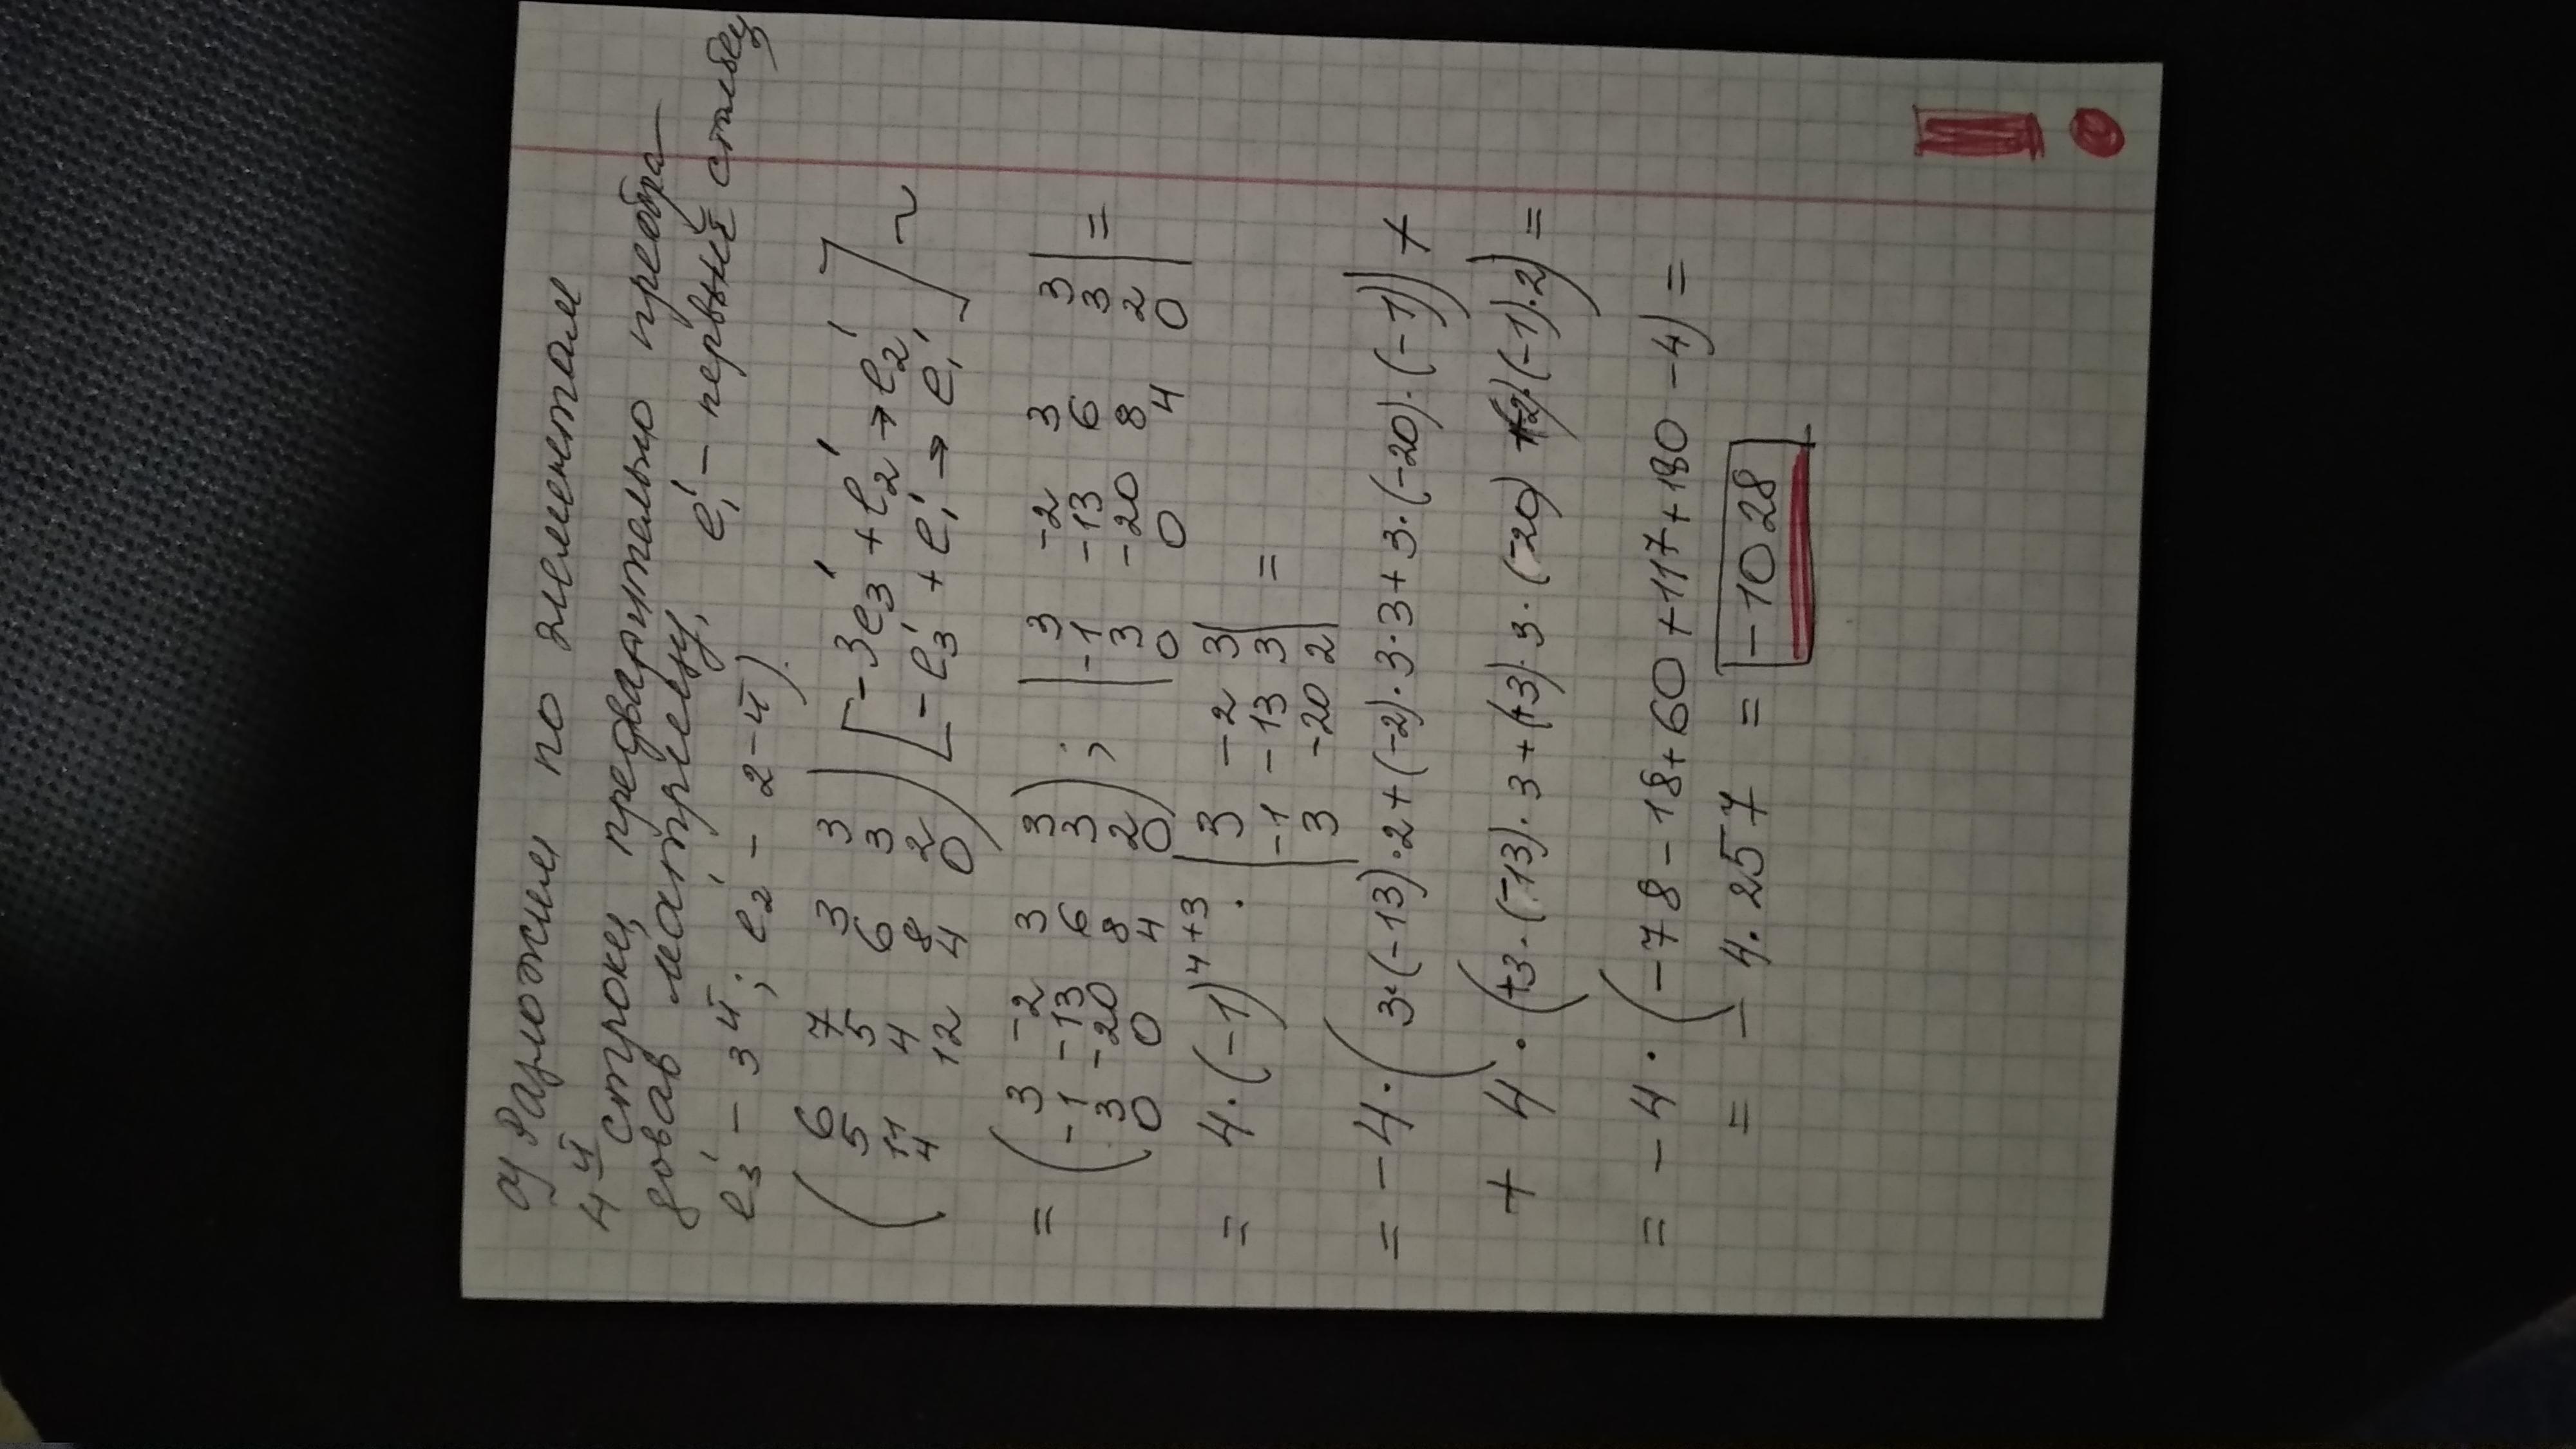 а) Разложим по элементам
4-й строки, предварительно преобра-
зовав матрицу. (e₁' - первый столбец
e₃' - 3-й; e₂' - 2-й).
( 6 7 3 3
5 5 6 3
11 4 8 2
4 12 4 0 ) [ -3e₃' + e₂' → e₂'
-e₃' + e₁' → e₁' ] ~
= ( 3 -2 3 3
-1 -13 6 3
3 -20 8 2
0 0 4 0 ) ; | 3 -2 3 3
-1 -13 6 3
3 -20 8 2
0 0 4 0 | =
= 4·(-1)⁴⁺³ · | 3 -2 3
-1 -13 3
3 -20 2 | =
= -4·(3·(-13)·2+(-2)·3·3+3·(-20)·(-1)) +
+ 4·(+3·(-13)·3+(+3)·3·(-20)+(-2)·(-1)·2) =
= -4·(-78-18+60+117+180-4) =
= -4·257 = -1028